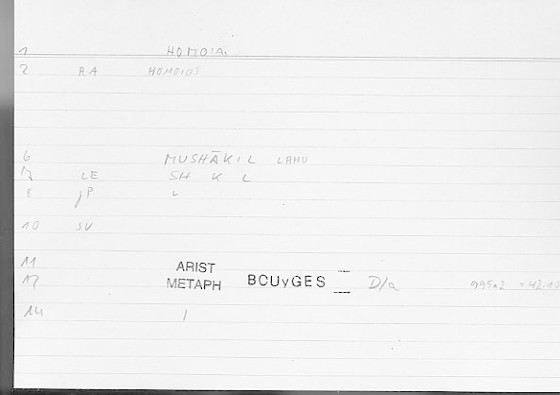 1 HOMOIA
2 RA HOMOIOS
6 MUSHĀKIL LAHU
7 LE SH K L
8 JP L
10 SV
11 ARIST
12 METAPH BOUyGES D/a 995a2
14 1